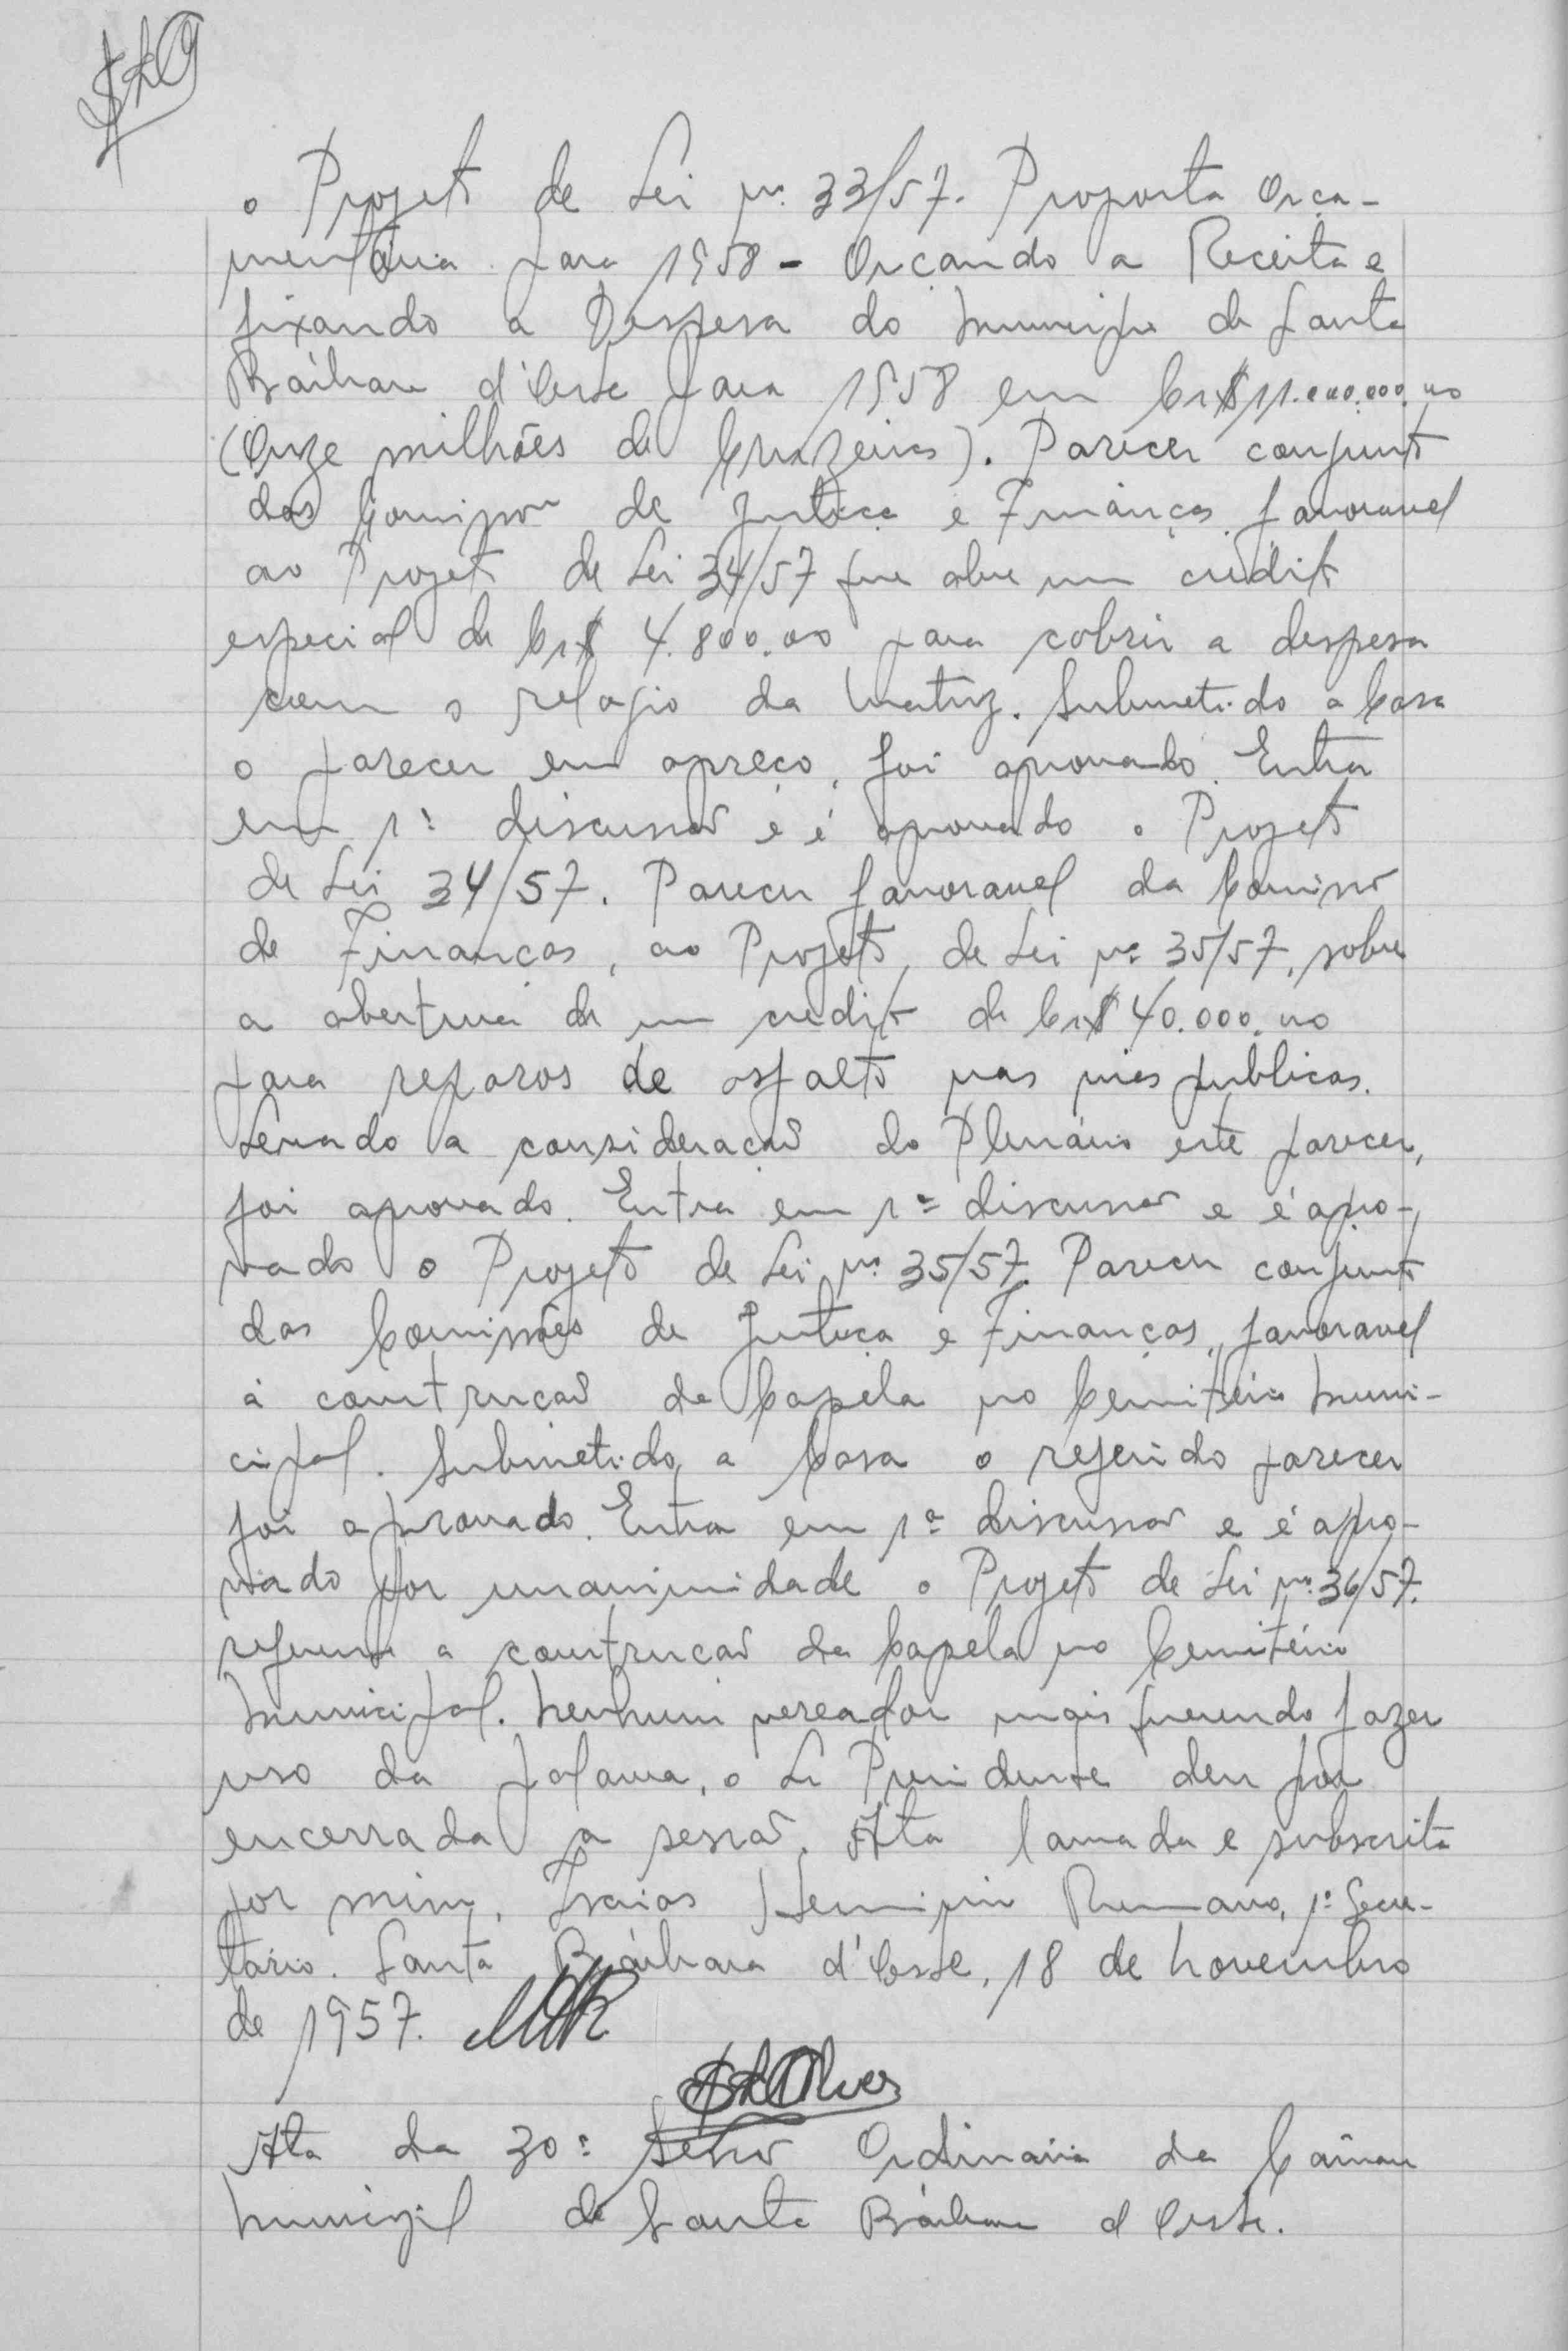 o Projeto de Lei nº 33/57. Proposta Orça-
mentária para 1958 - Orçando a Receita e
fixando a Despesa do Municipio de Santa
Bárbara d'Oeste para 1958 em Cr$ 11.000.000,00
(Onze milhões de Cruzeiros). Parecer conjunto
das Comissões de Justiça e Finanças, favoravel
ao Projeto de Lei 34/57 que abre um crédito
especial de Cr$ 4.800,00 para cobrir a despesa
com o relogio da Matriz. Submetido a Casa
o parecer em apreço, foi aprovado. Entra
em 1ª discussão e é aprovado o Projeto
de Lei 34/57. Parecer favoravel da Comissão
de Finanças, ao Projeto, de Lei nº 35/57, sobre
a abertura de um credito de Cr$ 40.000,00
para reparos de asfalto nas vias publicas.
Levado a consideração do Plenário este parecer,
foi aprovado. Entra em 1ª discussão e é apro-
vado o Projeto de Lei nº 35/57. Parecer conjunto
das Comissões de Justiça e Finanças, favoravel
á construção da Capela no Cemitério Muni-
cipal. Submetido, a Casa o referido parecer
foi aprovado. Entra em 1ª discussão e é apro-
vado por unanimidade o Projeto de Lei nº 36/57.
referente a construção da Capela no Cemitério
Municipal. Nenhum vereador mais querendo fazer
uso da palavra, o Sr Presidente deu por
encerrada a sessão. Ata lavrada e subscrita
por mim, Isaias Herminio Romano, 1º Secre-
tário. Santa Bárbara d'Oeste, 18 de Novembro
de 1957.
Ata da 30ª Sessão Ordinária da Câmara
Municipal de Santa Bárbara d Oeste.